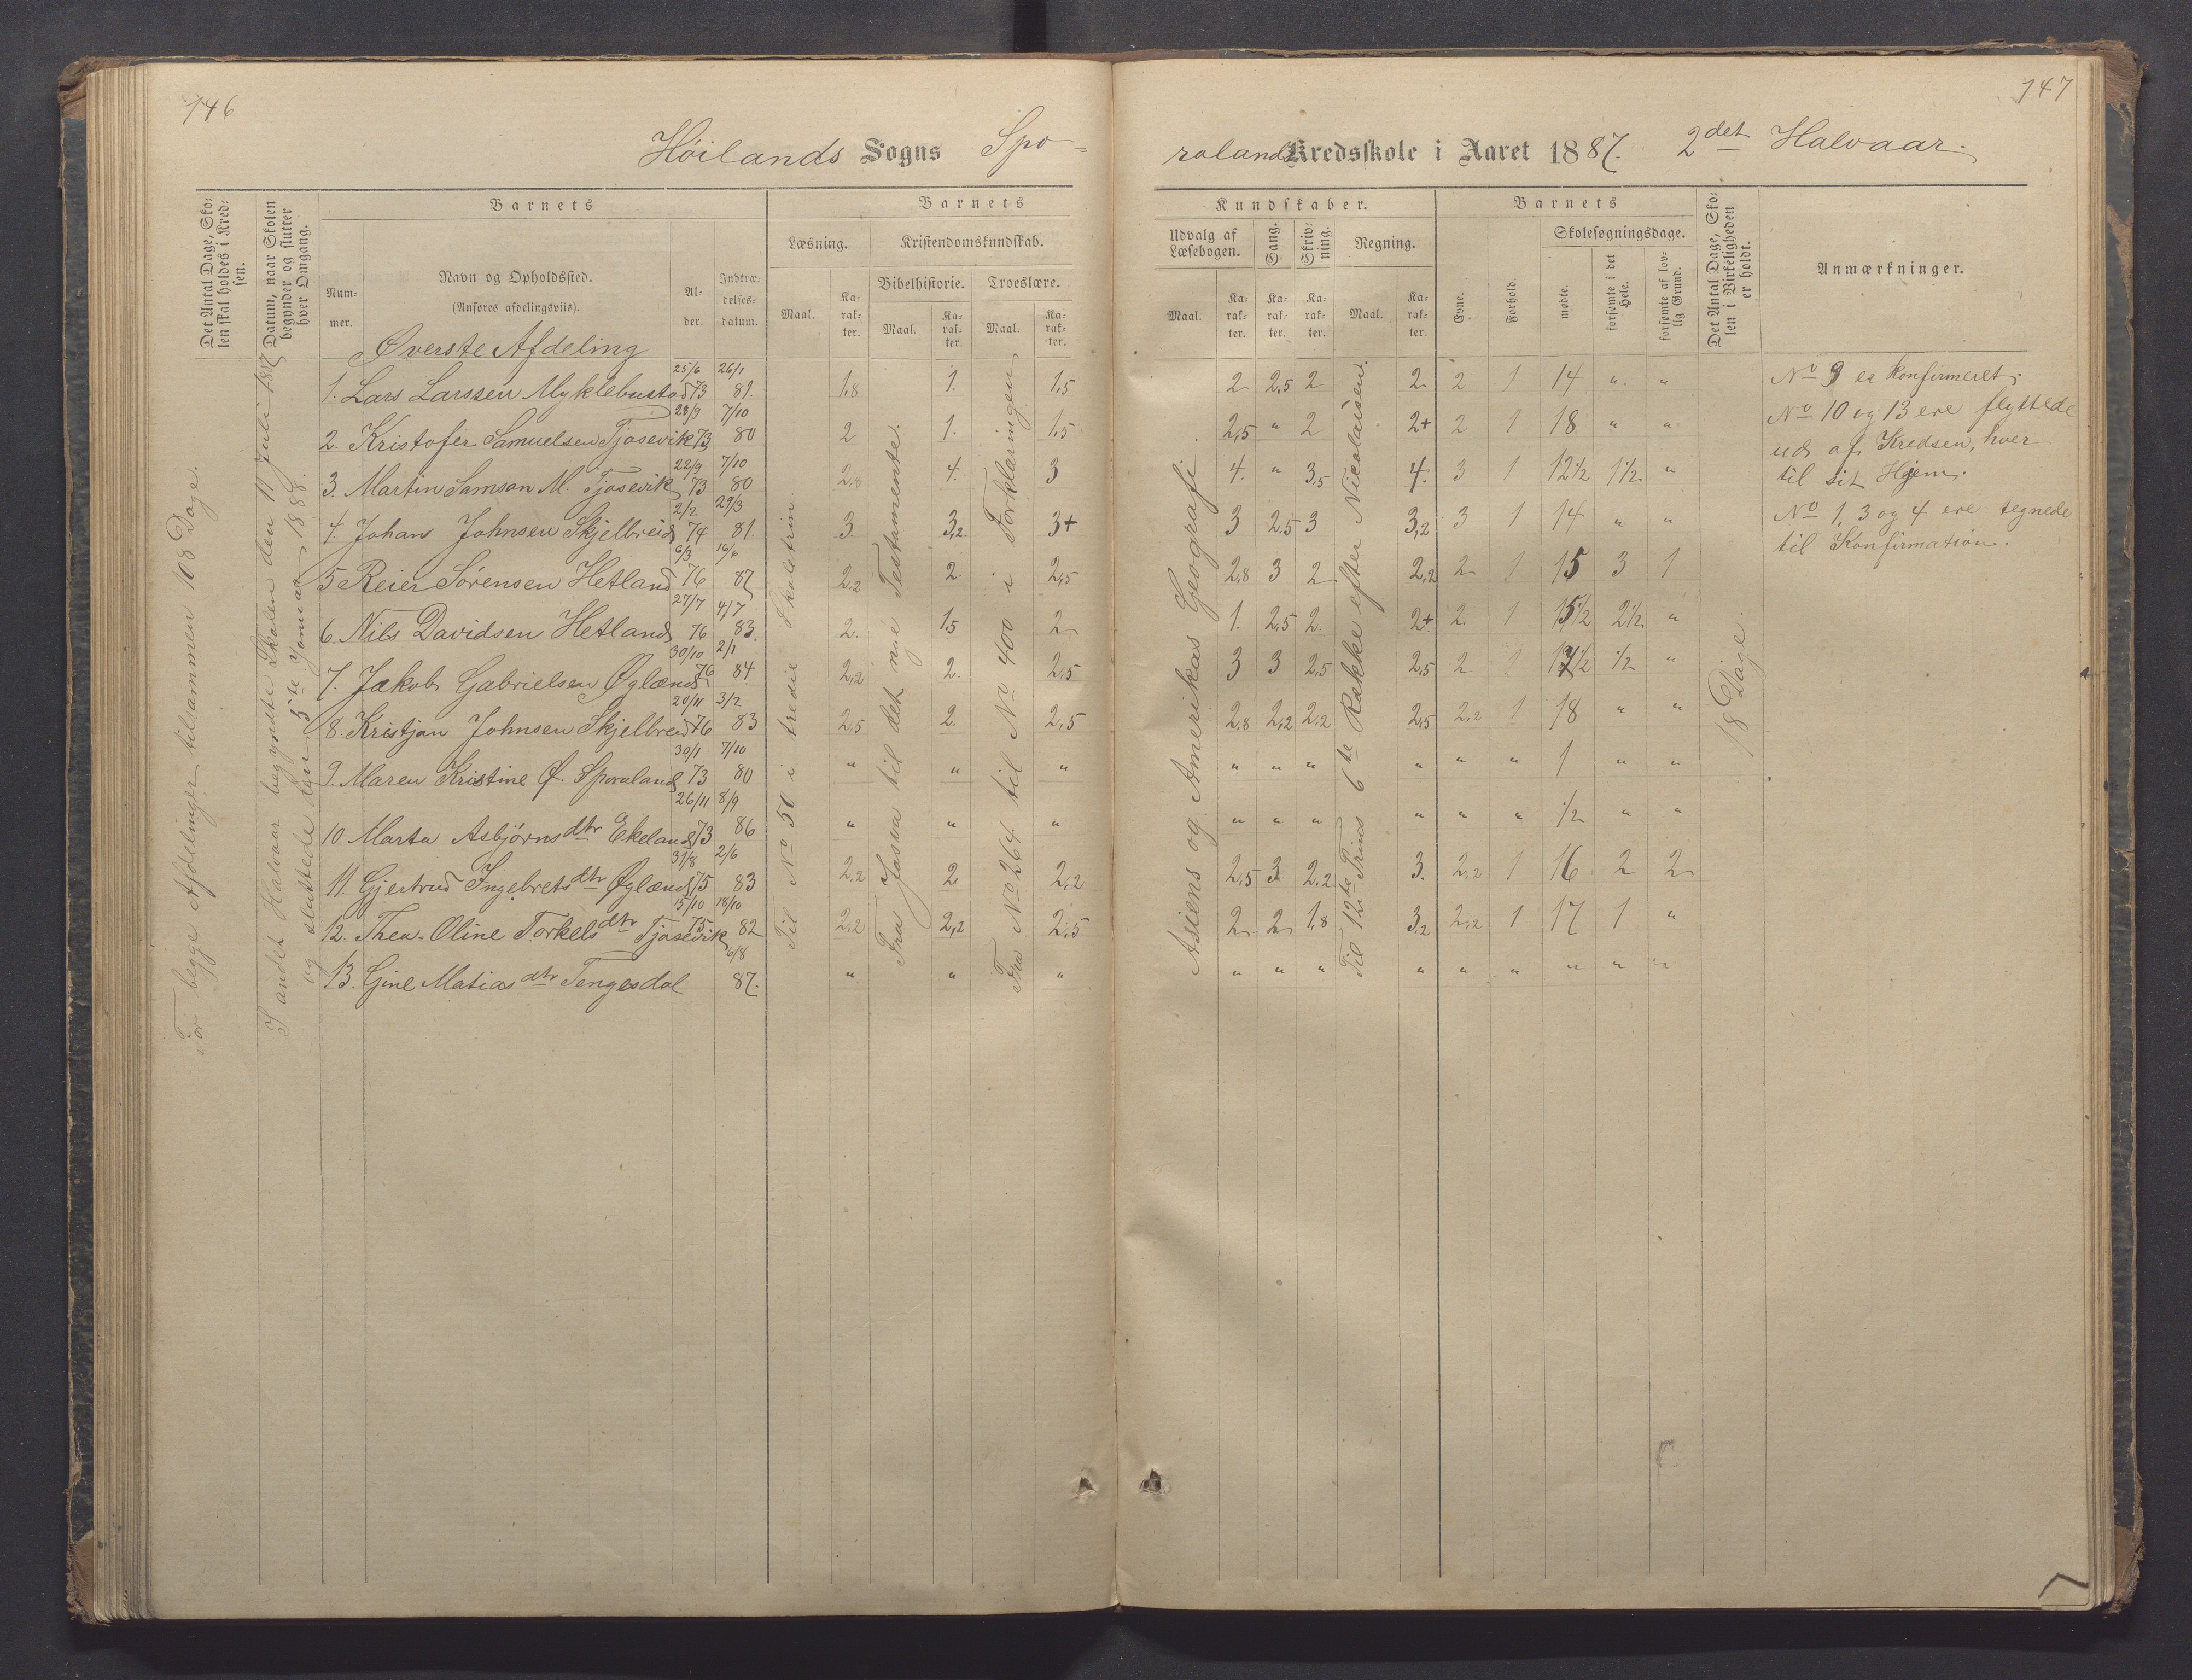 146
Høilands Sogns Spo=
Det Antal Dage, Sko=
len skal holdes i Kred=
sen.
Datum, naar Skolen
begynder og slutter
hver Omgang.
Barnets
Num=
mer.
Navn og Opholdssted.
(Anføres afdelingsviis).
Al=
der.
Indtræ=
delses=
datum.
Barnets
Læsning.
Kristendomskundskab.
Bibelhistorie.
Troeslære.
Maal.
Ka=
rak=
ter.
Maal.
Ka=
rak=
ter.
Maal.
Ka=
rak=
ter.
For begge Afdelinger tilsammen 108 Dage.
I andet Halvaar begyndte Skolen den 11 Juli 1887
og sluttede den 5te Januar 1888.
Til No 50 i tredie Skoletrin.
Fra Josva til det nye Testamente.
Fra No 264 til No 400 i Forklaringen
Øverste Afdeling
1. Lars Larssen Myklebustad 25/6 73 26/1 81. 1,8 1. 1,5
2. Kristofer Samuelsen Tjosevik 28/9 73 7/10 80 2 1. 1,5
3. Martin Samson M. Tjosevik 22/9 73 7/10 80 2,8 4. 3
4. Johans Johnsen Skjelbreid 2/2 74 29/3 81. 3. 3,2. 3+
5 Reier Sørensen Hetland 6/3 76 16/6 87 2,2 2. 2,5
6. Nils Davidsen Hetland 27/7 76 4/7 83. 2. 1,5 2
7. Jakob Gabrielsen Øglænd 30/10 76 2/1 84 2,2 2. 2,5
8. Kristjan Johnsen Skjelbreid 20/11 76 3/2 83 2,5 2. 2,5
9. Maren Kristine Ø. Sporaland 30/1 73 7/10 80 " " "
10 Marta Asbjørnsdtr Ekeland 26/11 73 8/9 86 " " "
11. Gjertrud Ingebretsdtr Øglænd 31/8 75 2/6 83 2,2 2 2,2
12. Thea Oline Torkelsdtr Tjosevik 15/10 75 18/10 82 2,2 2,2 2,5
13. Gine Matiasdtr Tengesdal 6/8 87. " " "
147
rolands Kredsskole i Aaret 1887. 2det Halvaar.
Kundskaber.
Udvalg af
Læsebogen.
Sang.
Skriv=
ning.
Regning.
Maal.
Ka=
rak=
ter.
Ka=
rak=
ter.
Ka=
rak=
ter.
Maal.
Ka=
rak=
ter.
Barnets
Evne.
Forhold.
Skolesøgningsdage.
mødte.
forsømte i det
Hele.
forsømte af lov=
lig Grund.
Det Antal Dage, Sko=
len i Virkeligheden
er holdt.
Anmærkninger.
Asiens og Amerikas Geografi
Til 12te Trins 6te Række efter Nicolaisen.
18 Dage.
2 2,5 2 2 2 1 14 " "
2,5 " 2 2+ 2 1 18 " "
4. " 3,5 4. 3 1 12 1/2 1 1/2 "
3 2,5 3 3,2 3 1 14 " "
2,8 3 2 2,2 2 1 15 3 1
1. 2,5 2. 2+ 2 1 15 1/2 2 1/2 "
3 3 2,5 2,5 2 1 17 1/2 1/2 "
2,8 2,2 2,2 2,5 2,2 1 18 " "
" " " " " " 1 " "
" " " " " " 1/2 " "
2,5 3 2,2 3. 2,2 1 16 2 2
2 2 1,8 3,2 2,2 1 17 1 "
" " " " " " " " "
No 9 er konfirmeret;
No 10 og 13 ere flyttede
ud af Kredsen, hver
til sit Hjem.
No 1, 3 og 4 ere tegnede
til Konfirmation.